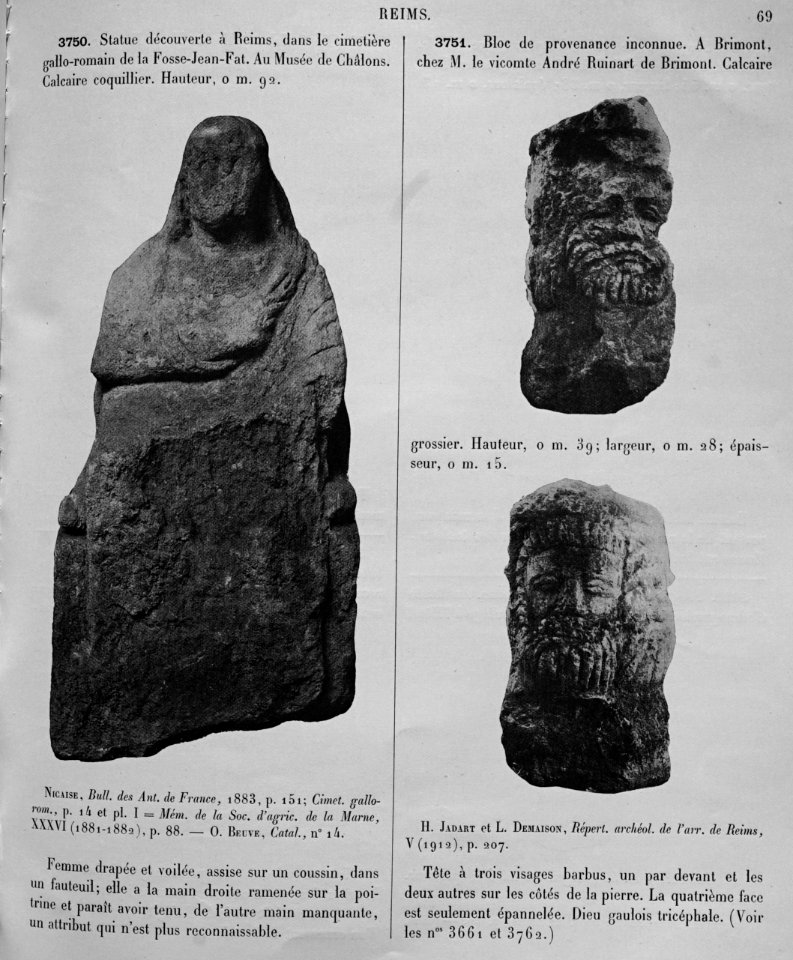 REIMS.
69
3750. Statue découverte à Reims, dans le cimetière
gallo-romain de la Fosse-Jean-Fat. Au Musée de Châlons.
Calcaire coquillier. Hauteur, 0 m. 92.
NICAISE, Bull. des Ant. de France, 1883, p. 151; Cimet. gallo-
rom., p. 14 et pl. I = Mém. de la Soc. d'agric. de la Marne,
XXXVI (1881-1882), p. 88. — O. BEUVE, Catal., n° 14.
Femme drapée et voilée, assise sur un coussin, dans
un fauteuil; elle a la main droite ramenée sur la poi-
trine et paraît avoir tenu, de l'autre main manquante,
un attribut qui n'est plus reconnaissable.
3751. Bloc de provenance inconnue. A Brimont,
chez M. le vicomte André Ruinart de Brimont. Calcaire
grossier. Hauteur, 0 m. 39; largeur, 0 m. 28; épais-
seur, 0 m. 15.
H. JADART et L. DEMAISON, Répert. archéol. de l'arr. de Reims,
V (1912), p. 207.
Tête à trois visages barbus, un par devant et les
deux autres sur les côtés de la pierre. La quatrième face
est seulement épannelée. Dieu gaulois tricéphale. (Voir
les nos 3661 et 3762.)